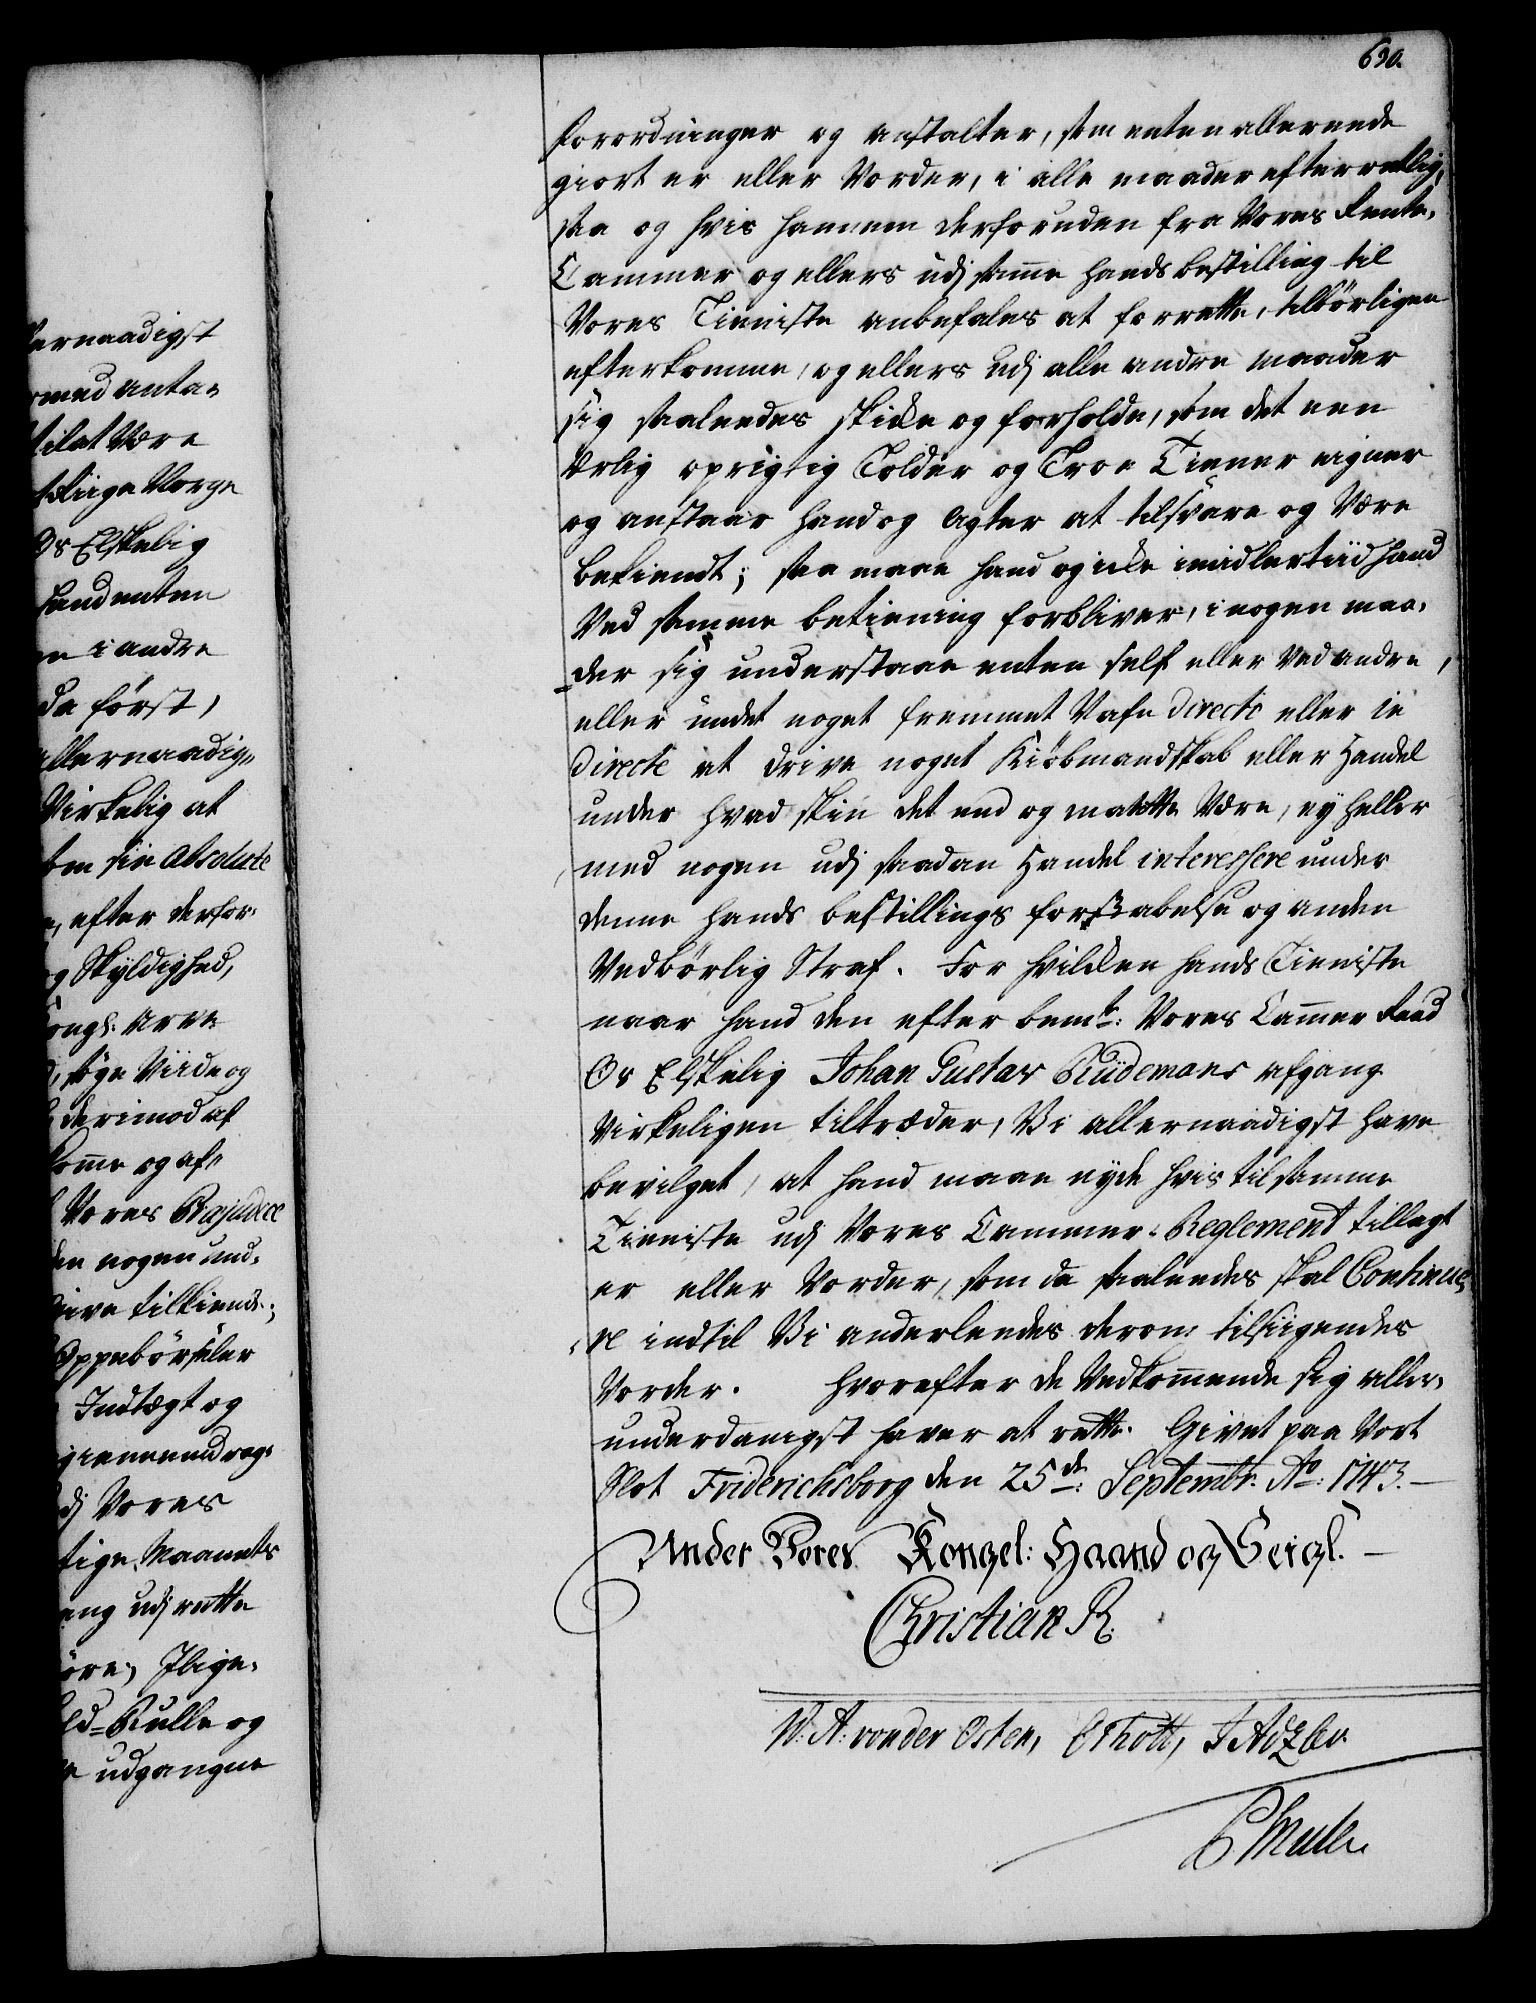 ernaadigst
rmed anta=
tilat Være
Kiige Norge
Os Elskelig
hand enten
en i andre
da först,
allernaadig=
Virkelig at
som sin Absolute
e, efter derfor=
og Skyldighed,
Kongl: Arve
söge Viide og
derimod af
komme og af=
Vores Præjudice
den nogen und=
give tilkiende;
Oppebörseler
Indtægt og
igiennemdrag=
udj Vores
tige Maaneds
ang udj rette
öre; Ilige=
ld=Rulle og
e udgangne
690.
Forordninger og Anstalter, som enten allereede
giort er eller Vorder, i alle maader efterrettelig,
saa og hvis hannem derforuden fra Vores Rente=
Cammer og ellers udj samme hands bestilling til
Vores Tieniste anbefales at forrette, tilbörligen
efterkomme, og ellers udj alle andre maader
sig saaleedes skicke og forholde, som det een
Ærlig oprigtig Tolder og Troe Tiener eigner
og anstaar hand og Agter at tilsvare og Være
bekiendt; saa maae hand og icke imidlertiid hand
Ved samme betiening forbliver, i nogen maa=
der sig understaae enten self eller Ved andre,
eller undet noget fremmet Nafn directe eller in
directe at drive noget Kiöbmandskab eller Handel
under hvad skin det end og maatte Være, ey heller
med nogen udj saadan Handel interessere under
denne hands bestillings fortabelse og anden
Vedbörlig Straf. For hvilcken hands Tieniste
naar hand den efter bemte: Vores Cammer Raad
Os Elskelig Johan Gustav Rüdemans afgang
Virkeligen tiltræder, Vi allernaadigst have
bevilget, at hand maae nyde hvis til samme
Tieniste udj Vores Cammer=Reglement tillagt
er eller Vorder, som da saaleedes skal Continue=
re indtil Vi anderleedes derom tilsiigendes
Vorder. Hvorefter de Vedkommende sig aller=
underdanigst haver at rette. Givet paa Vort
Slot Friderichsborg den 25de: Septembr: Ao: 1743.
Under Vores Kongel: Haand og Seigl.
Christian R.
W: A: von der Osten, O Thott,